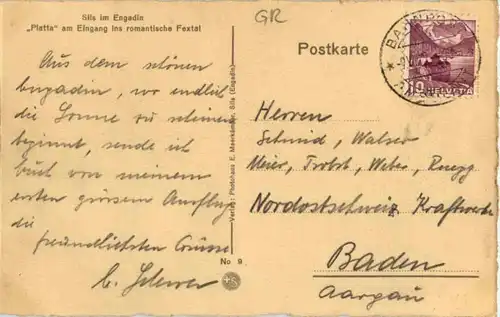 Sils im Engadin
„Platta" am Eingang ins romantische Fextal
GR
Postkarte
Aus dem schönen
Engadin, wo endlich
die Sonne zu scheinen
beginnt, sende ich
Euch von meinem
ersten grossen Ausflug
die
freundlichsten Grüsse
Verlag: Photohaus E. Meerkämper, Sils (Engadin)
No 9
10
HELVETIA
Herren
Schmid, Walser
Meier, Trobst, Weber, Ruegg
Nordostschweiz Kraftwerke
Baden
Aargau